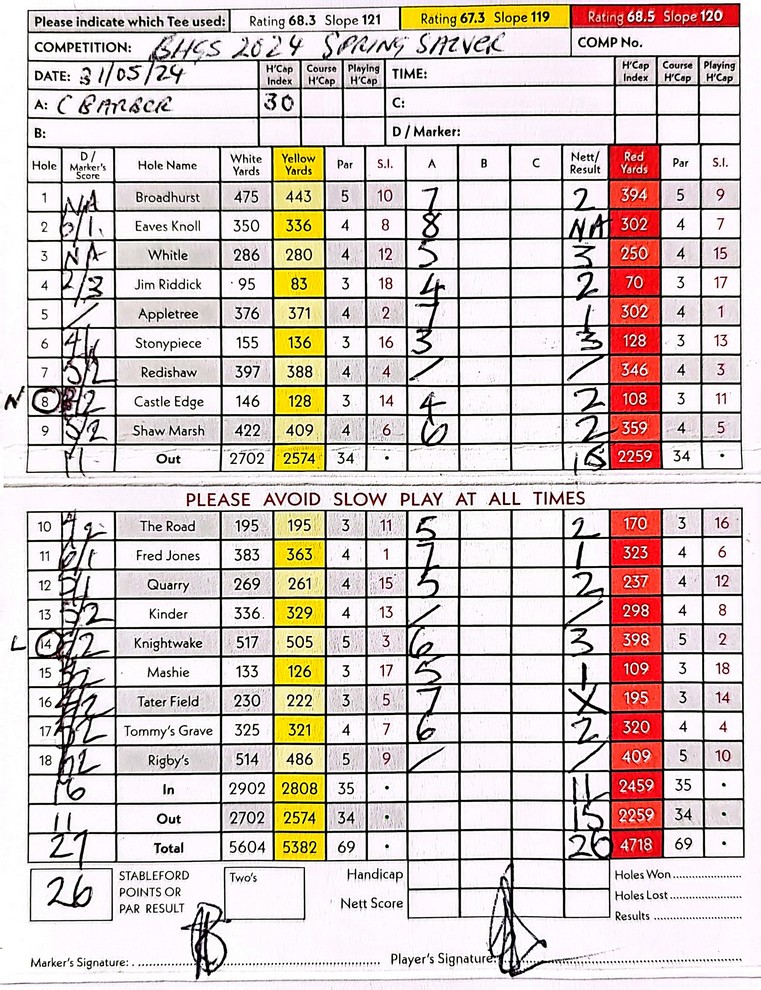 Please indicate which Tee used: Rating 68.3 Slope 121 Rating 67.3 Slope 119 Rating 68.5 Slope 120
COMPETITION: BHGS 2024 SPRING SALVER COMP No.
DATE: 31/05/24 H'Cap Index Course H'Cap Playing H'Cap TIME: H'Cap Index Course H'Cap Playing H'Cap
A: C BARBER 30 C:
B: D / Marker:
Hole D / Marker's Score Hole Name White Yards Yellow Yards Par S.I. A B C Nett/ Result Red Yards Par S.I.
1 NA Broadhurst 475 443 5 10 7 2 394 5 9
2 Eaves Knoll 350 336 4 8 8 NA 302 4 7
3 NA Whitle 286 280 4 12 5 3 250 4 15
4 2/3 Jim Riddick 95 83 3 18 4 2 70 3 17
5 / Appletree 376 371 4 2 7 1 302 4 1
6 4/1 Stonypiece 155 136 3 16 3 3 128 3 13
7 5/2 Redishaw 397 388 4 4 / / 346 4 3
N 8 /2 Castle Edge 146 128 3 14 4 2 108 3 11
9 5/2 Shaw Marsh 422 409 4 6 6 2 359 4 5
11 Out 2702 2574 34 • 15 2259 34 •
PLEASE AVOID SLOW PLAY AT ALL TIMES
10 4/2 The Road 195 195 3 11 5 2 170 3 16
11 6/1 Fred Jones 383 363 4 1 7 1 323 4 6
12 5/1 Quarry 269 261 4 15 5 2 237 4 12
13 5/2 Kinder 336 329 4 13 / / 298 4 8
L 14 /2 Knightwake 517 505 5 3 6 3 398 5 2
15 Mashie 133 126 3 17 5 1 109 3 18
16 4/2 Tater Field 230 222 3 5 7 X 195 3 14
17 52 Tommy's Grave 325 321 4 7 6 2 320 4 4
18 Rigby's 514 486 5 9 / / 409 5 10
16 In 2902 2808 35 • 11 2459 35 •
11 Out 2702 2574 34 • 15 2259 34 •
27 Total 5604 5382 69 • 26 4718 69 •
26 STABLEFORD POINTS OR PAR RESULT Two's Handicap Holes Won
Nett Score Holes Lost
Results
Marker's Signature: Player's Signature: